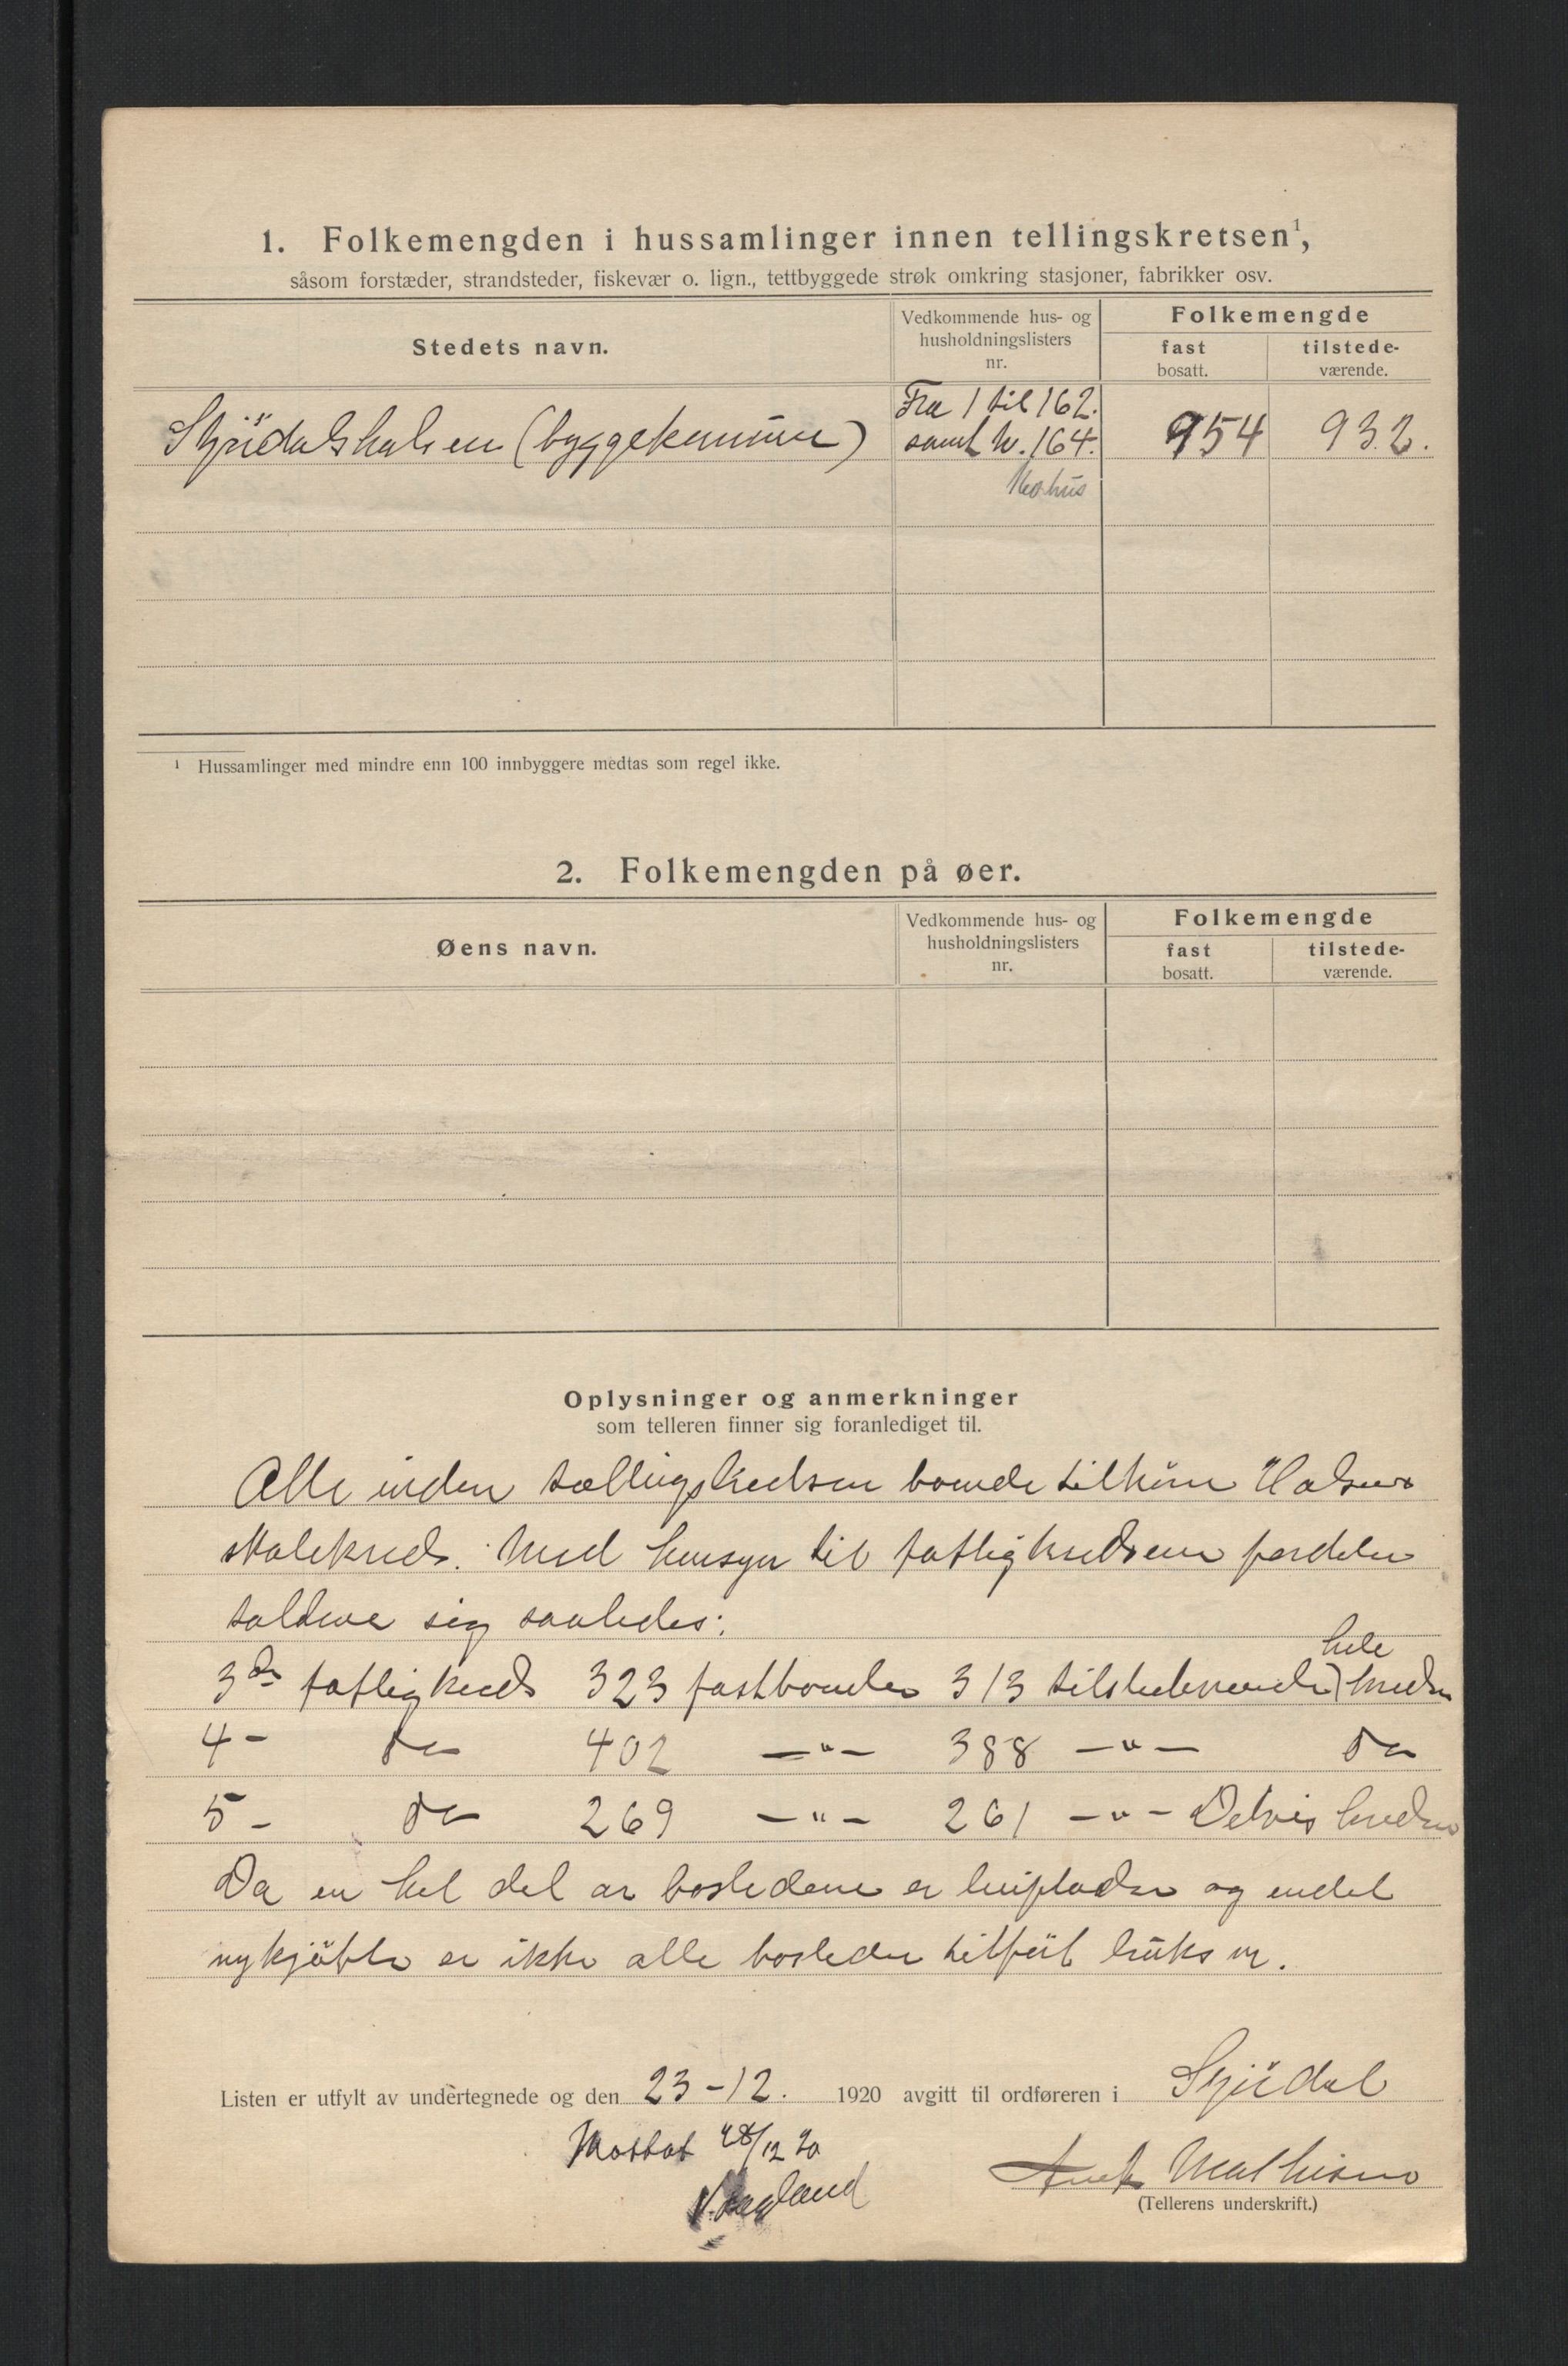 1. Folkemengden i hussamlinger innen tellingskretsen¹,
såsom forstæder, strandsteder, fiskevær o. lign., tettbyggede strøk omkring stasjoner, fabrikker osv.
Stedets navn.
Vedkommende hus- og husholdningslisters nr.
Folkemengde
fast bosatt.
tilstede-værende.
Fra 1 til 162.
Stjørdalshalsen (byggekommune) samt nr. 164. 954 932.
¹ Hussamlinger med mindre enn 100 innbyggere medtas som regel ikke.
2. Folkemengden på øer.
Øens navn.
Vedkommende hus- og husholdningslisters nr.
Folkemengde
fast bosatt.
tilstede-værende.
Oplysninger og anmerkninger
som telleren finner sig foranlediget til.
Alle inden tællingskredsen boende tilhører Halsens
skolekreds. Med hensyn til fattigkredsene fordeler
tallene sig saaledes:
hele
3de fattigkreds 323 fastboende 313 tilstedeværende) kredsen
4 - do 402 —"— 388 —"— do
5 - do 269 —"— 261 —"— Delvis kredsen
Da en hel del av bostedene er leiepladser og endel
nykjøpte er ikke alle bosteder tilføiet bruks nr.
Listen er utfylt av undertegnede og den 23-12. 1920 avgitt til ordføreren i Stjørdal
Mottat 28/12 20
Mathisen
(Tellerens underskrift.)